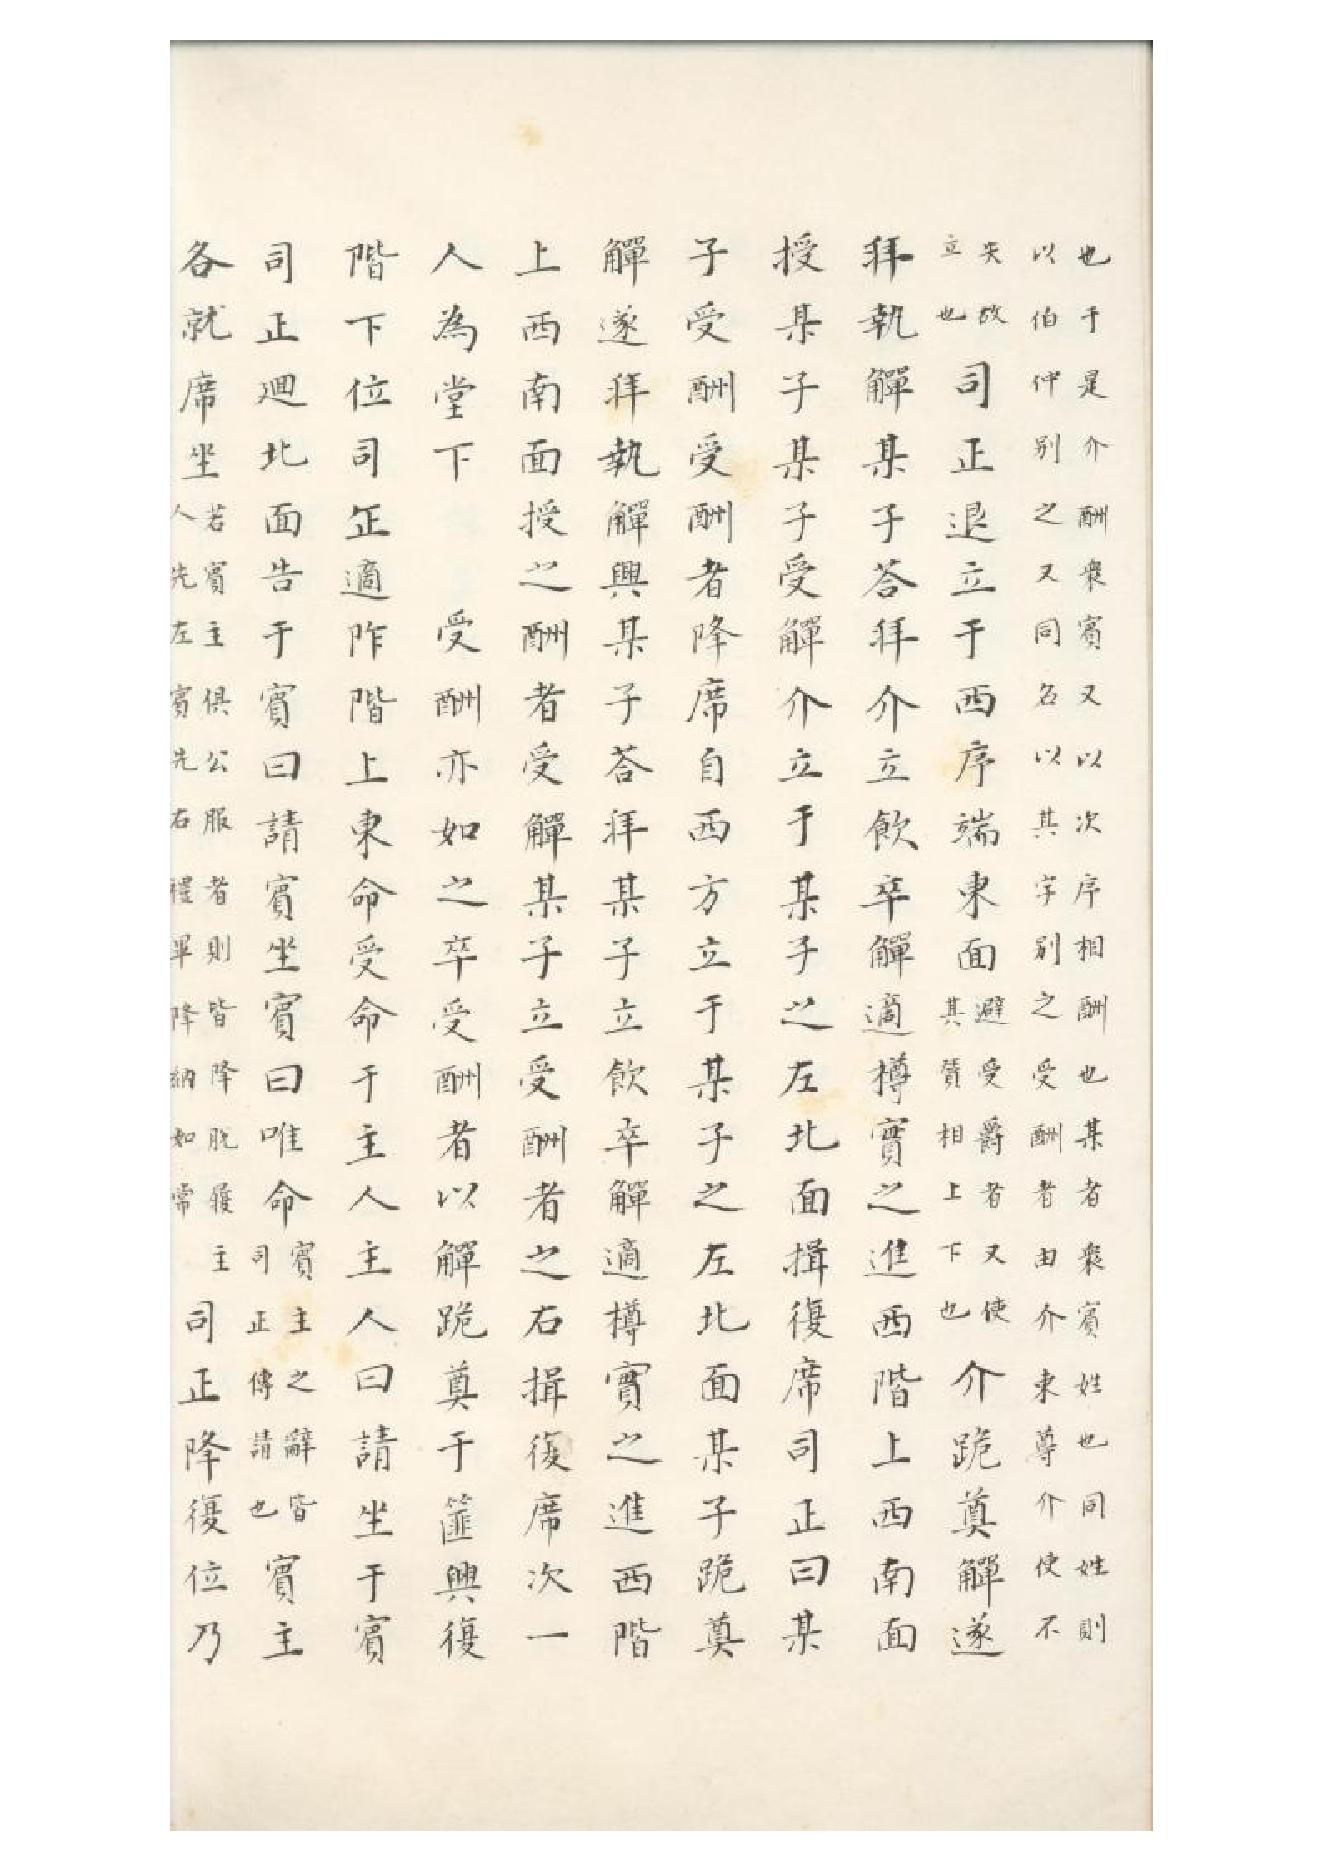 也于是介酬衆賓又以次序相酬也某者衆賓姓也同姓則
以伯仲别之又同名以其字别之受酬者由介東尊介使不
失故
立也
司正退立于西序端東面
避受爵者又使
其賛相上下也
介跪奠觶遂
拜執觶某子荅拜介立飲卒觶適樽實之進西階上西南面
授某子某子受觶介立于某子之左北面揖復席司正曰某
子受酬受酬者降席自西方立于某子之左北面某子跪奠
觶遂拜執觶興某子荅拜某子立飲卒觶適樽實之進西階
上西南面授之酬者受觶某子立受酬者之右揖復席次一
人為堂下 受酬亦如之卒受酬者以觶跪奠于篚興復
階下位司正適阼階上東命受命于主人主人曰請坐于賓
司正廻北面告于賓曰請賓坐賓曰唯命
賓主之辭皆
司正傳請也
賓主
各就席坐
若賓主俱公服者則皆降脱履主
人先左賓先右禮畢降納如常
司正降復位乃